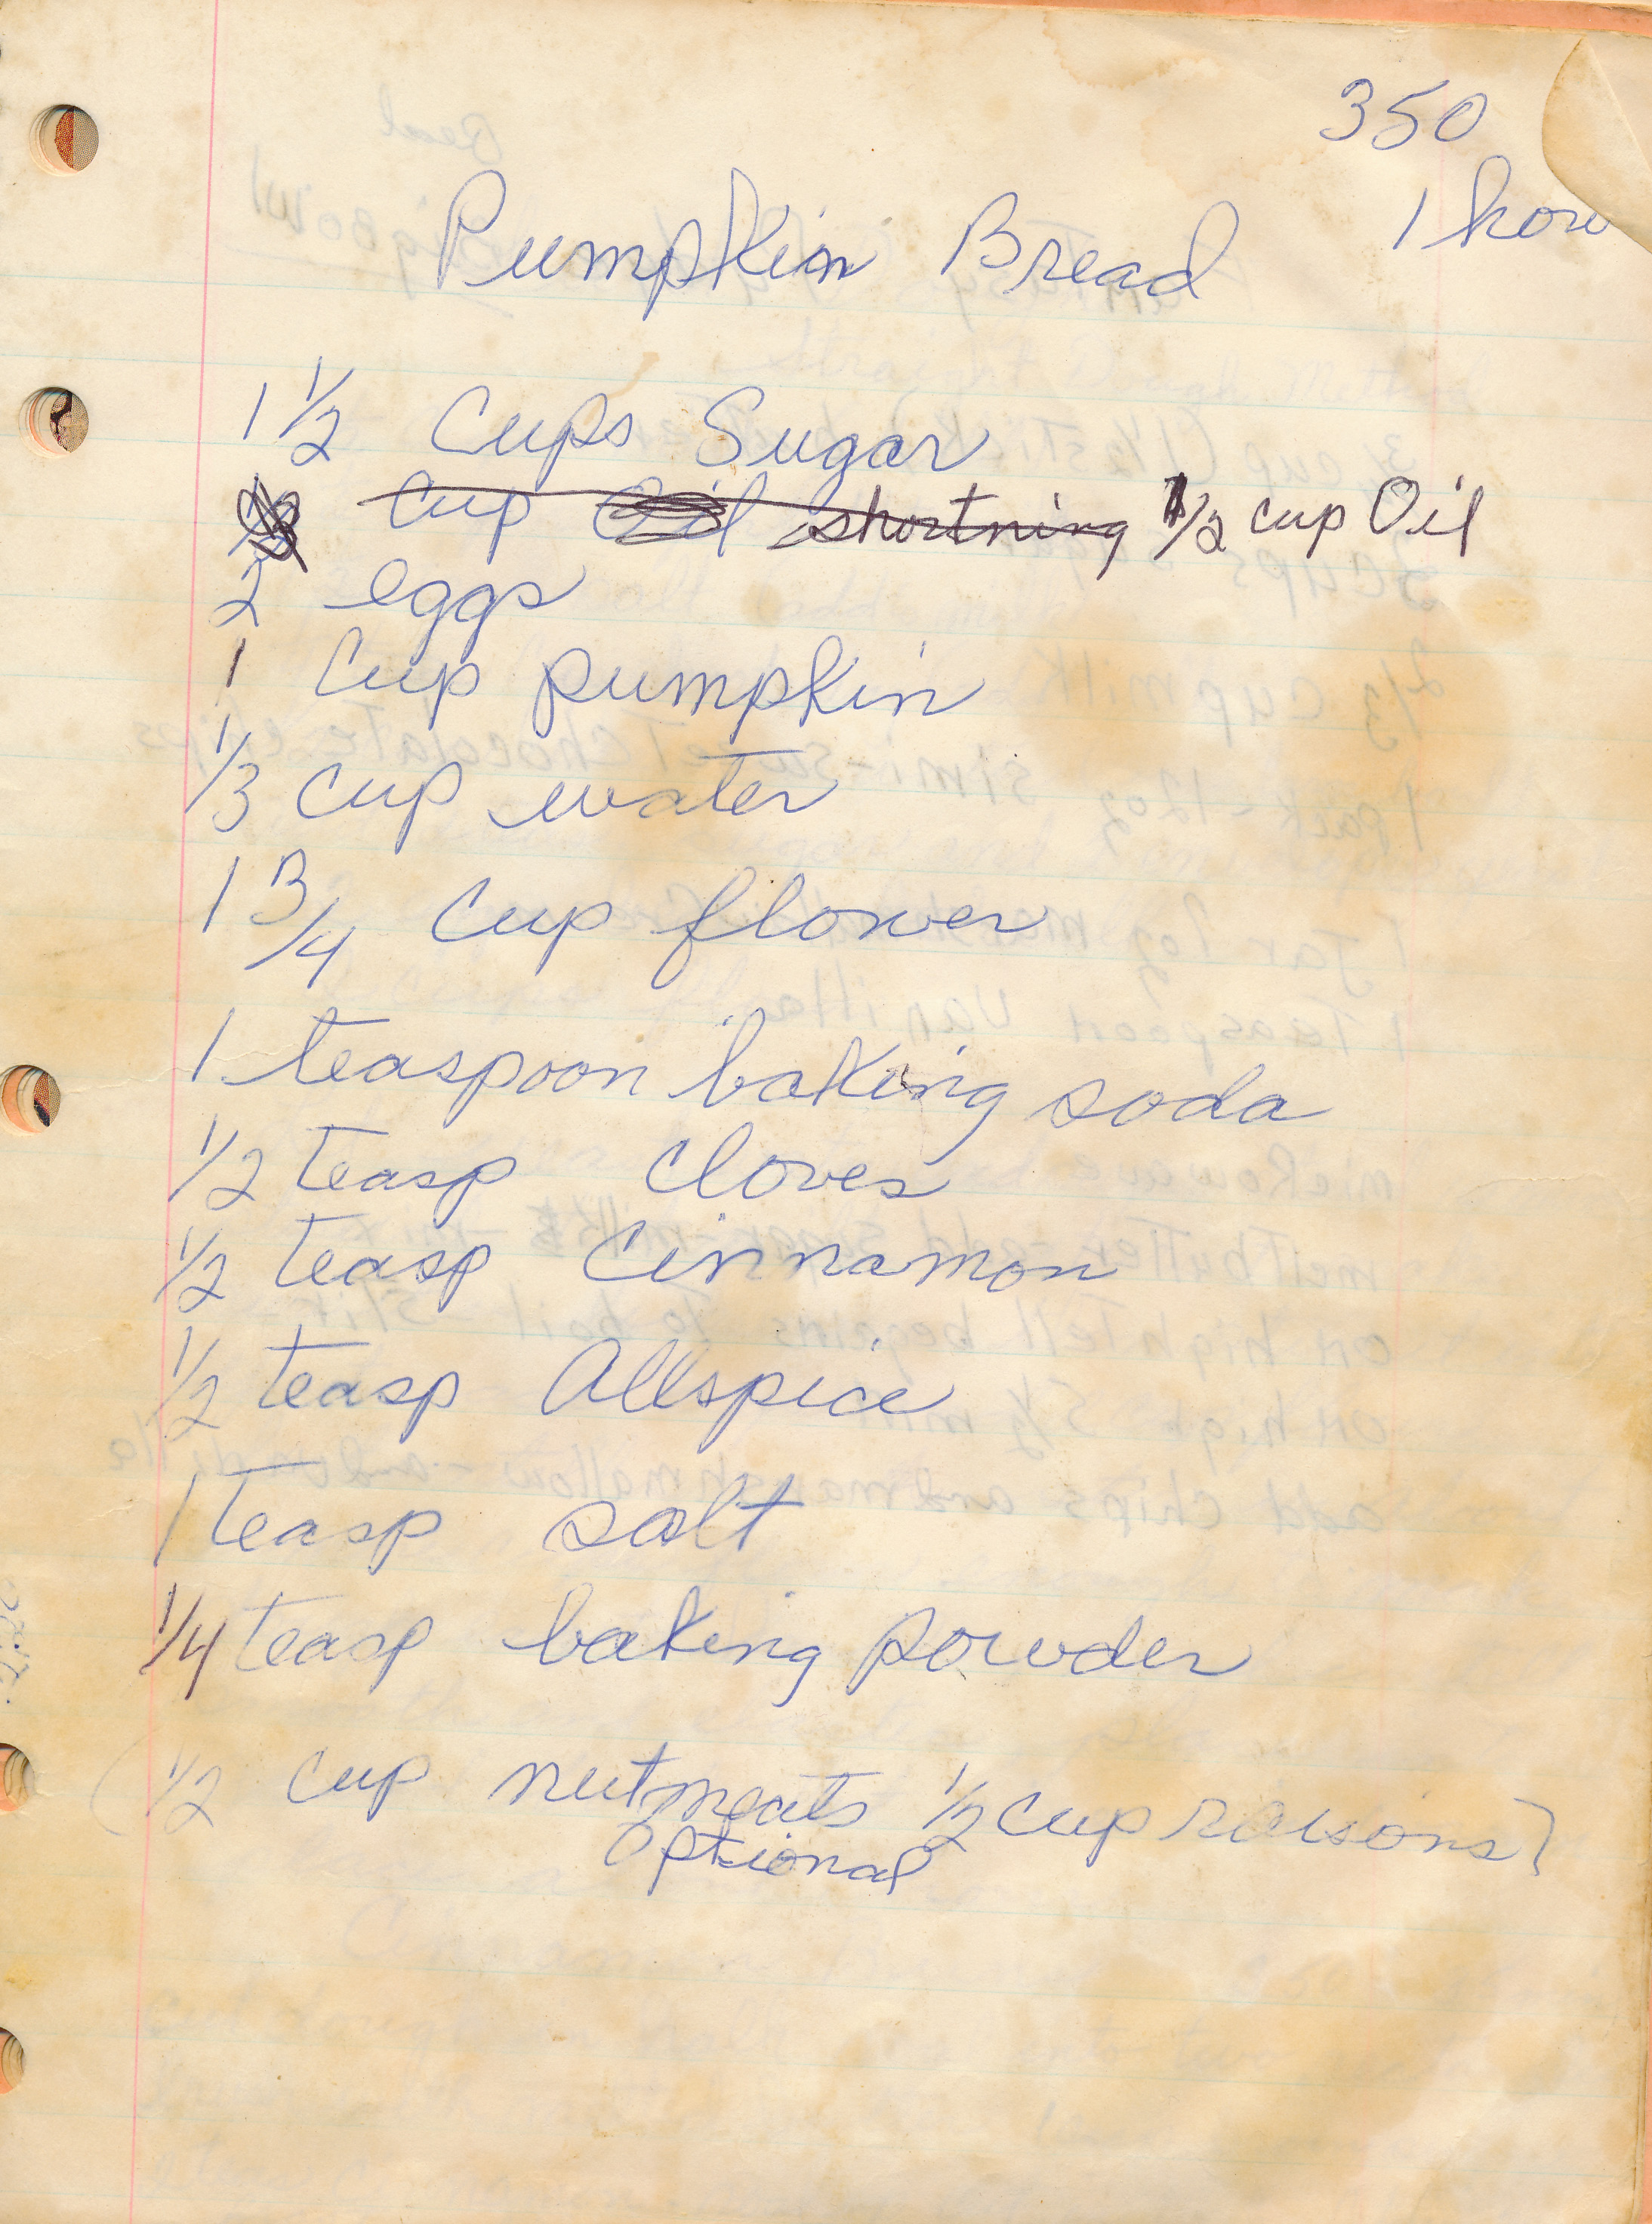 350
1 hour
Pumpkin Bread
1 1/2 Cups Sugar
cup Oil shortning 1/2 cup Oil
2 eggs
1 Cup pumpkin
1/3 cup water
1 3/4 cup flower
1 teaspoon baking soda
1/2 teasp cloves
1/2 teasp Cinnamon
1/2 teasp Allspice
1 teasp salt
1/4 teasp baking powder
(1/2 cup nutmeats 1/2 cup raisons)
Optional